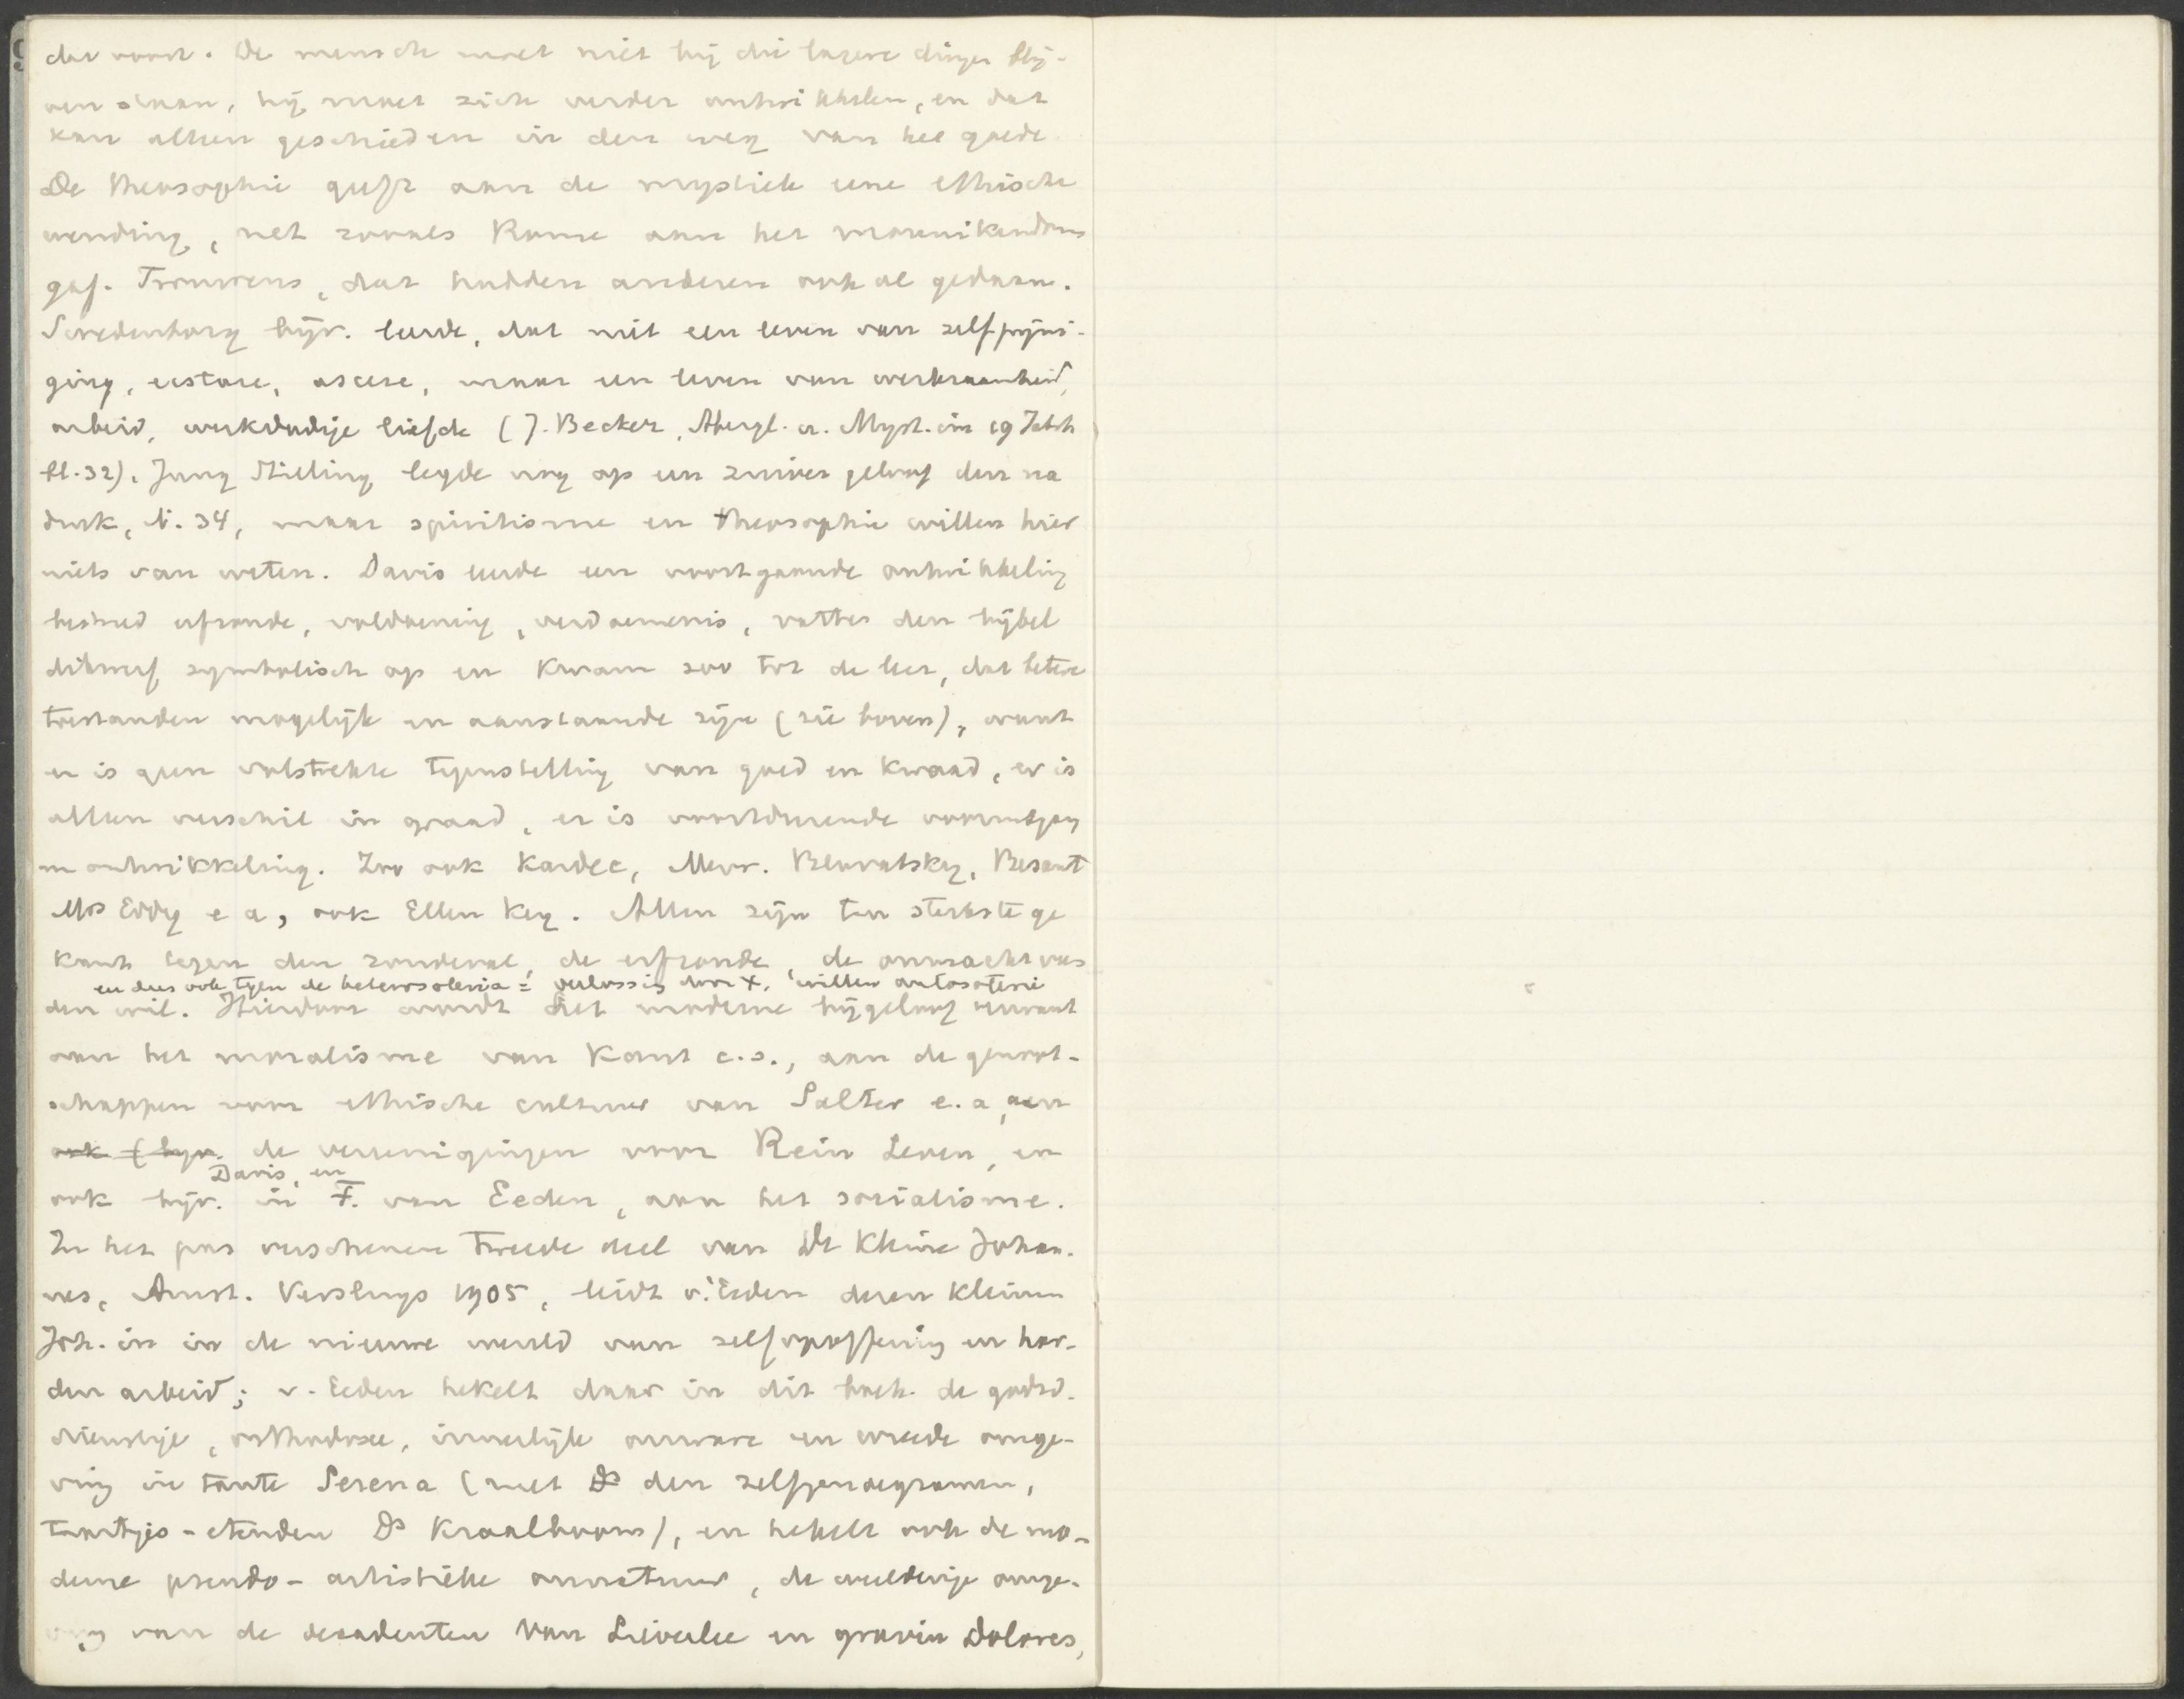 dat voort. De mensch moet niet bij die lagere dingen blij-
ven staan, hij moet zich verder ontwikkelen, en dat
kan alleen geschieden in den weg van het goede
De theosophie geeft aan de mystiek eene ethische
wending, net zooals Rome aan het monnikendom
gaf. Trouwens, dat hadden anderen ook al gedaan.
Swedenborg bijv. leerde, dat niet een leven van zelfpijni-
ging, extase, ascese, maar een leven van werkzaamheid,
arbeid, werkdadige liefde (J. Becker, Abergl. u. Myst. im 19 Jahrh
bl. 32). Jung Stilling legde nog op een zuiver geloof den na
druk, bl. 34, maar spiritisme en theosophie willen hier
niets van weten. Davis leerde een voortgaande ontwikkeling
bestreed erfzonde, voldoening, verdoemenis, vatte den bijbel
dikwerf symbolisch op en kwam zoo tot de leer, dat betere
toestanden mogelijk en aanstaande zijn (zie boven), want
er is geen volstrekte tegenstelling van goed en kwaad, er is
alleen verschil in graad, er is voortdurende vooruitgang
in ontwikkeling. Zoo ook Kardec, Mevr. Blavatsky, Besant
Mrs Eddy e a, ook Ellen Key. Allen zijn ten sterkste ge
kant tegen den zondeval, de erfzonde, de onmacht van
en dus ook tegen de heterosoteria = verlossing door X, willen autosoterie
den wil. Hierdoor wordt het moderne bijgeloof verwant
aan het moralisme van Kant c.s., aan de genoot-
schappen voor ethische cultuur van Salter e.a, aan
ook (bijv. de vereenigingen voor Rein Leven, en
Davis, en
ook bijv. in F. van Eeden, aan het socialisme.
In het pas verschenen tweede deel van De Kleine Johan-
nes, Amst. Versluys 1905, leidt v. Eeden dezen kleinen
Joh. in in de nieuwe wereld van zelfopoffering en har-
den arbeid; v. Eeden hekelt daar in dit boek de godsd-
dienstige, orthodoxe, innerlijk onware en wreede omge-
ving in tante Serena (met Ds den zelfgenoegzamen,
taartjes-etenden Ds Kraalboom), en hekelt ook de mo-
derne pseudo-artistieke onnatuur, de weelderige omge-
ving van de decadenten Van Lieverlee en gravin Dolores,